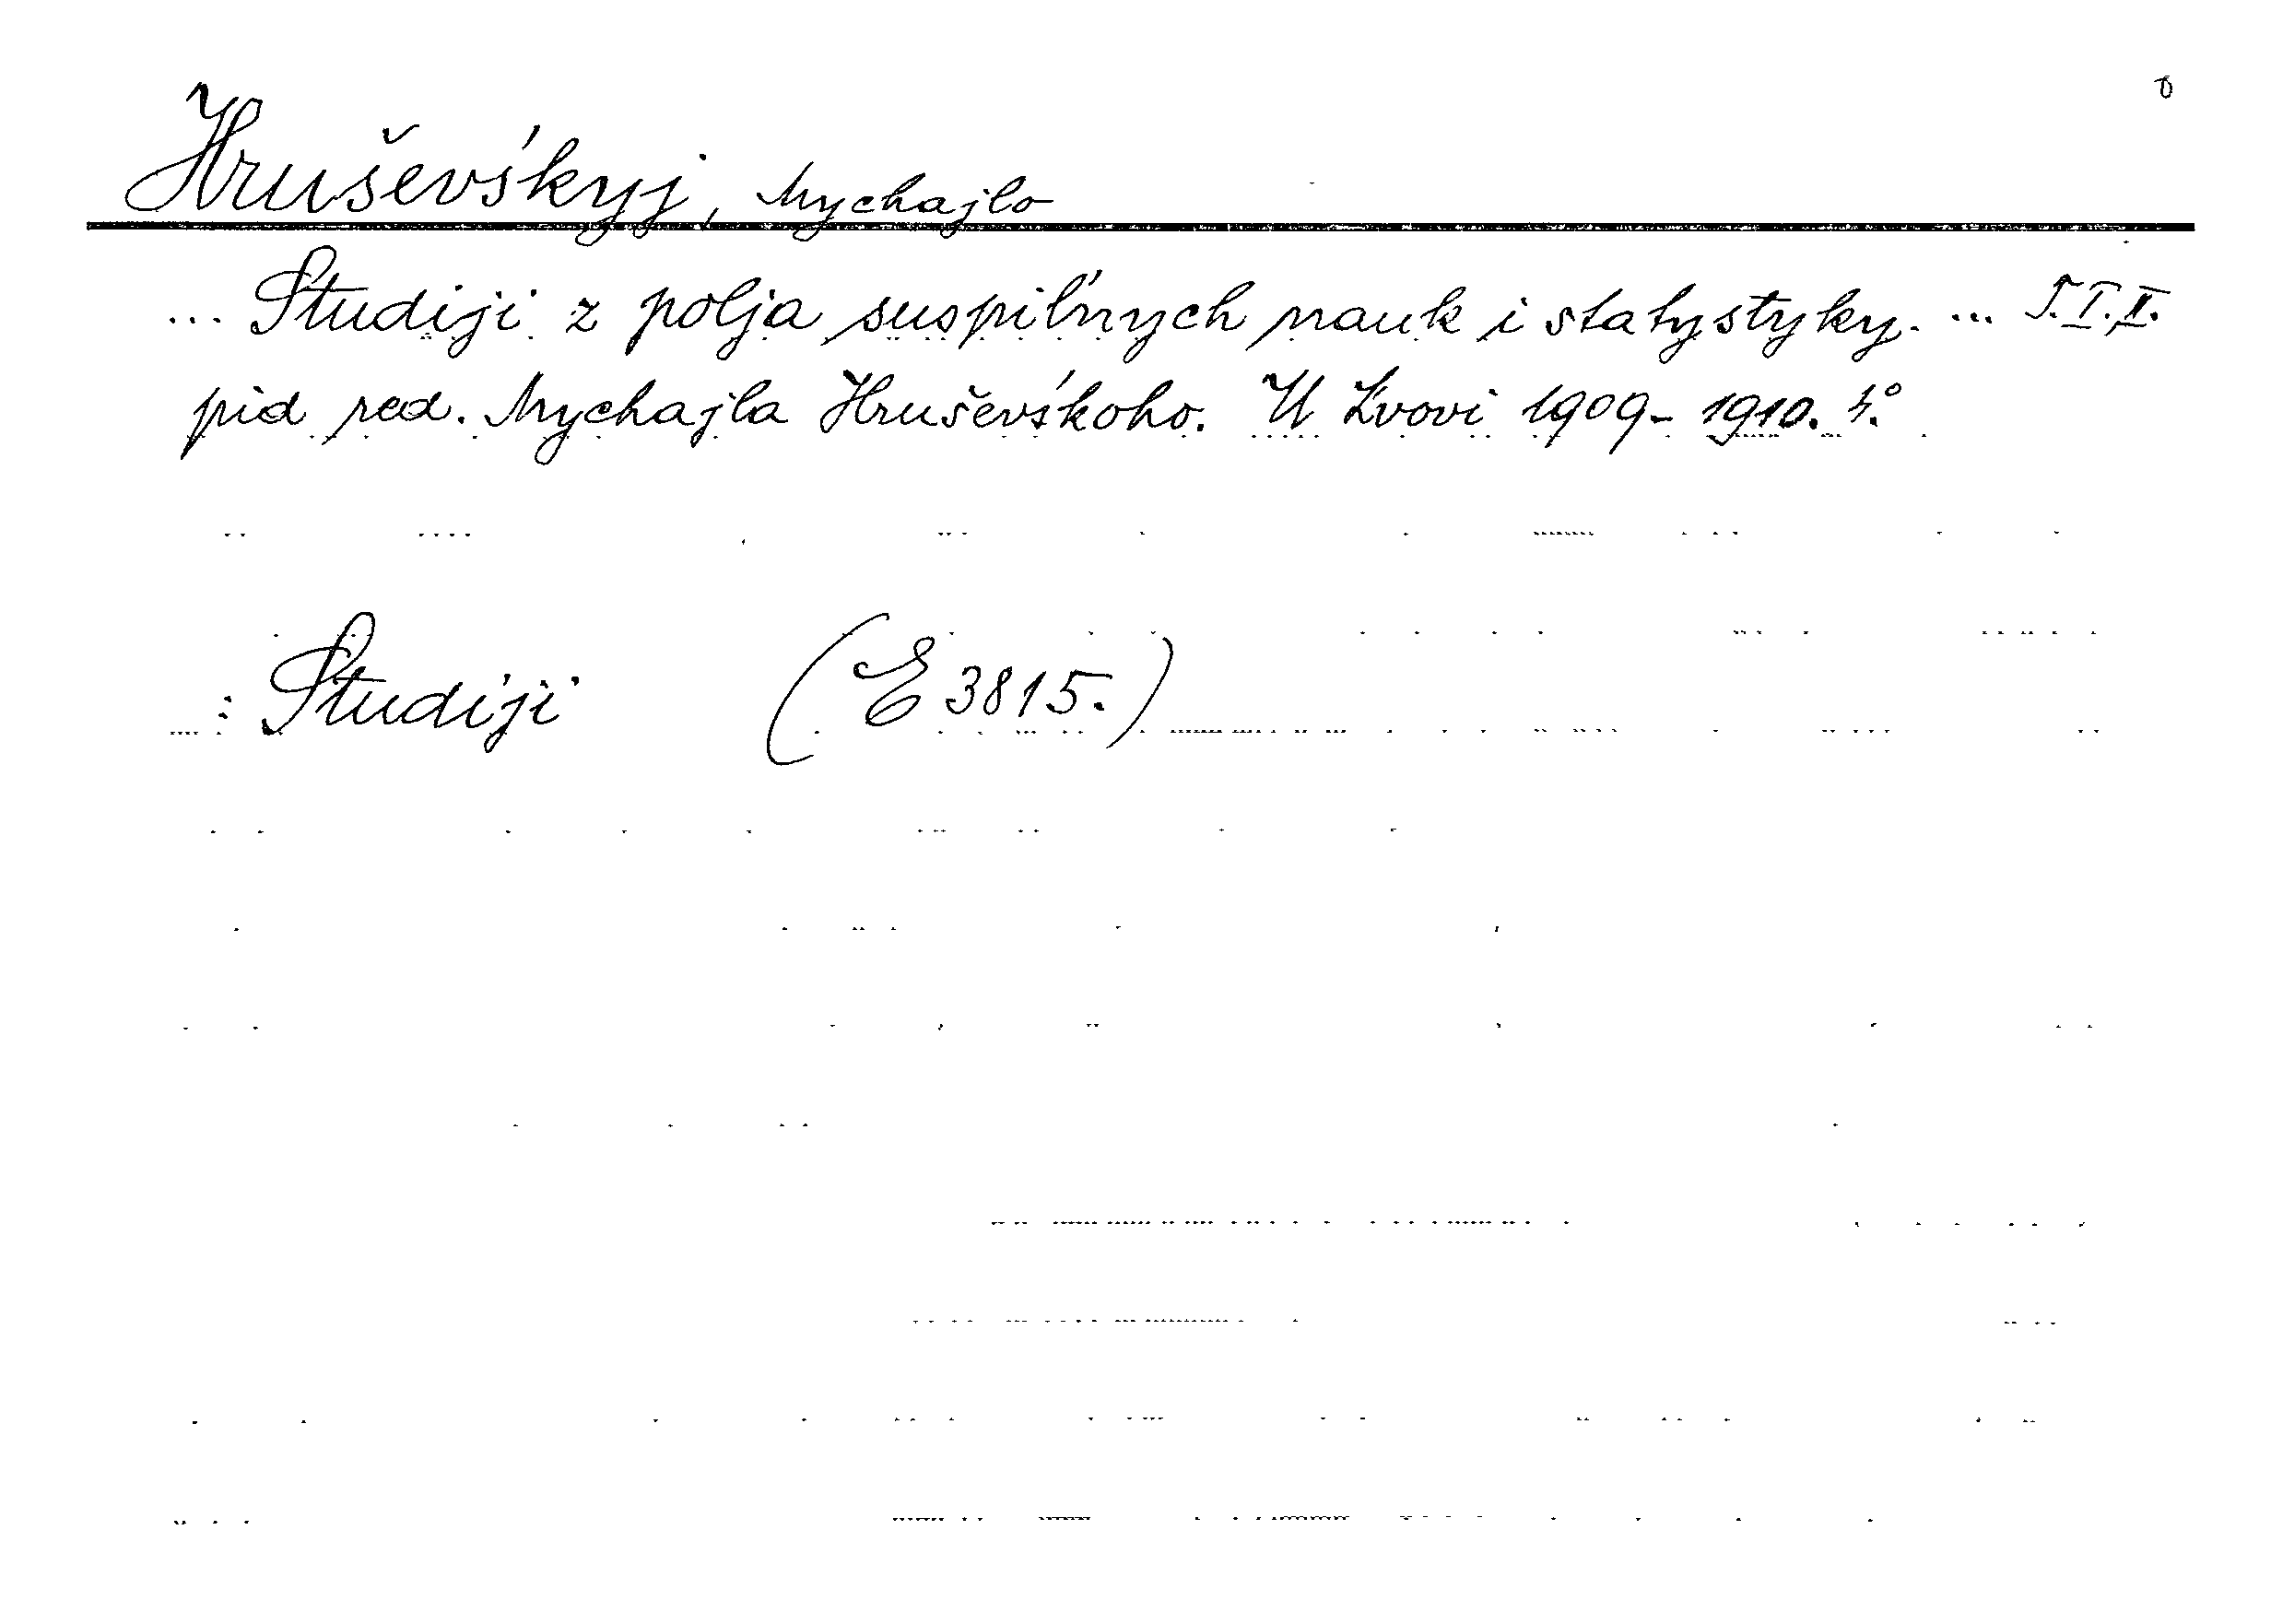 Hruševśkyj, Mychajlo
... Studiji z polja suspiľnych nauk i statystyky. ... T. I. II.
pid red. Mychajla Hruševśkoho. U Lvovi 1909-1910. 4.°
: Studiji (E 3815.)